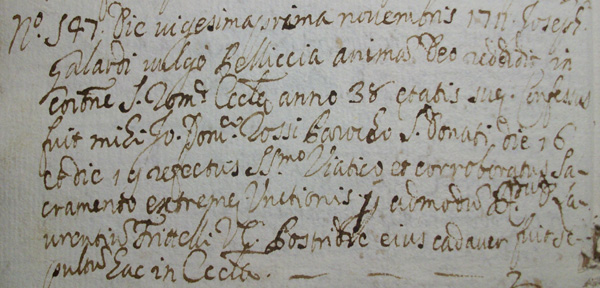 N.o 547. Die vigesima prima novembris 1711. Joseph
Galardi vulgo Belliccia animam Deo reddidit in
coione S. Rom.e Eccl.ę anno 38 etatis suę. Confessus
fuit mihi Jo. Dom.co Rossi Parocho S. Donati die 16
et die 19 refectus SS.mo Viatico et corroboratus Sa-
cramento extremę Unctionis p admodū
urentiū Postridie eius cadaver fuit se-
pultū hac in Eccl.a